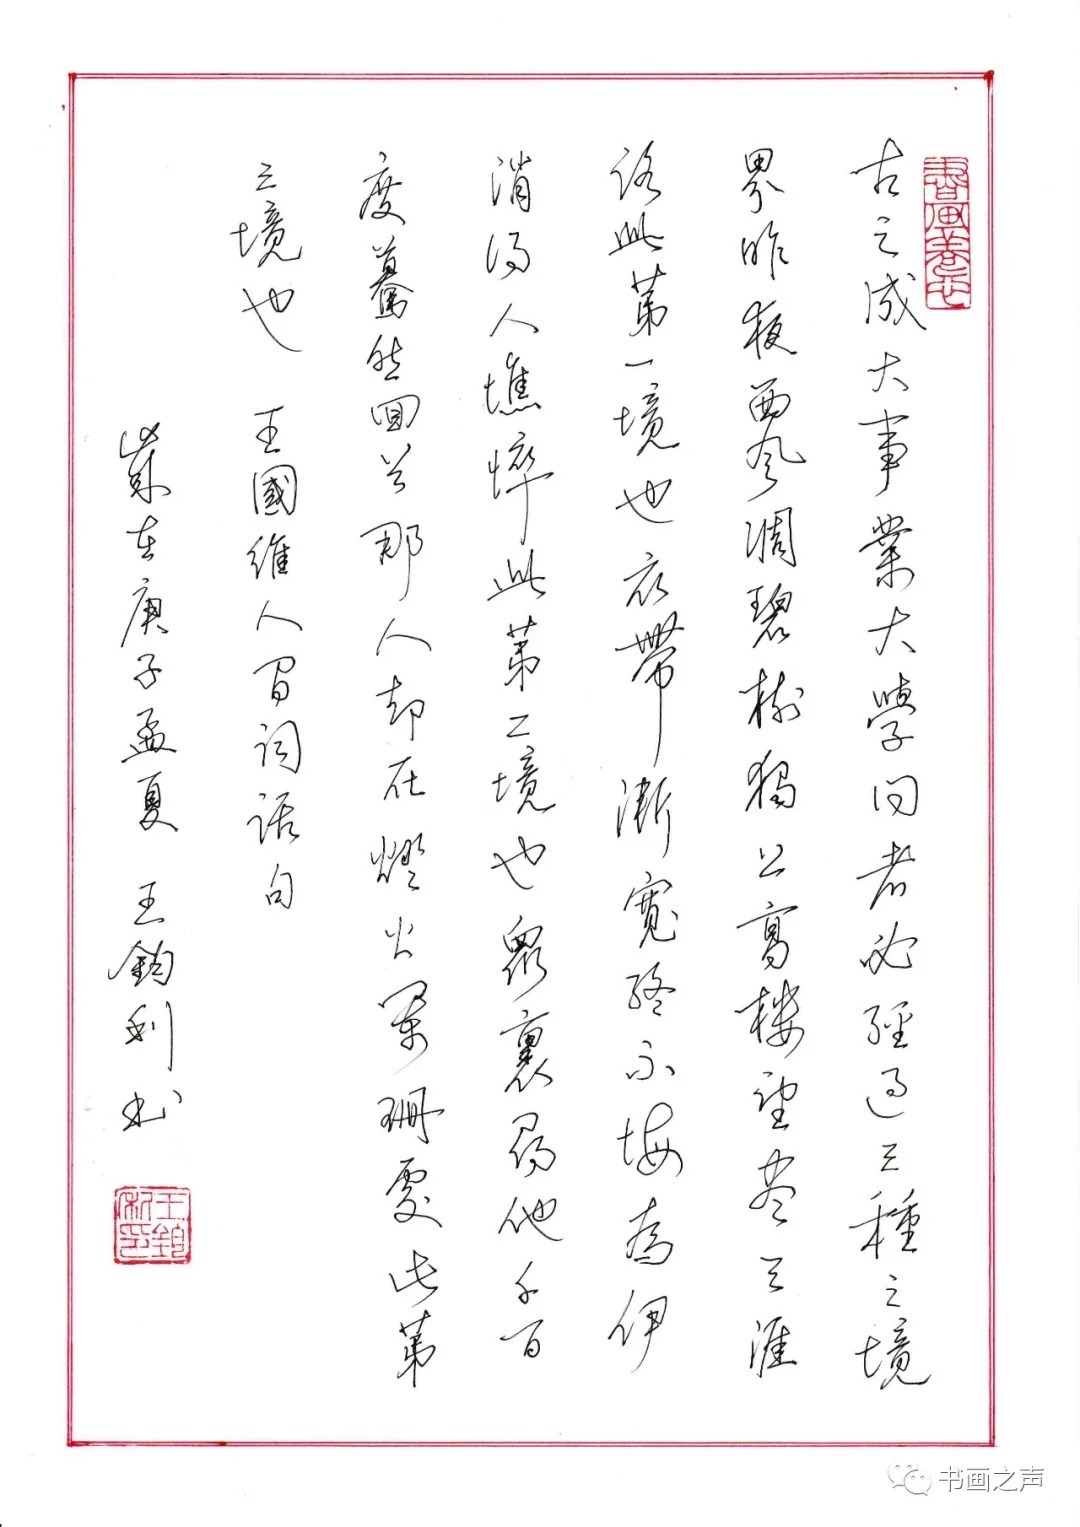 古之成大事業大學问者必經過三種之境
界昨夜西風凋碧樹獨上高樓望盡天涯
路此第一境也衣帶漸寬終不悔為伊
消得人憔悴此第二境也衆裏尋他千百
度驀然回首那人却在燈火闌珊處此第
三境也 王國維人间词話句
歲在庚子孟夏 王鈞利书
书画之声